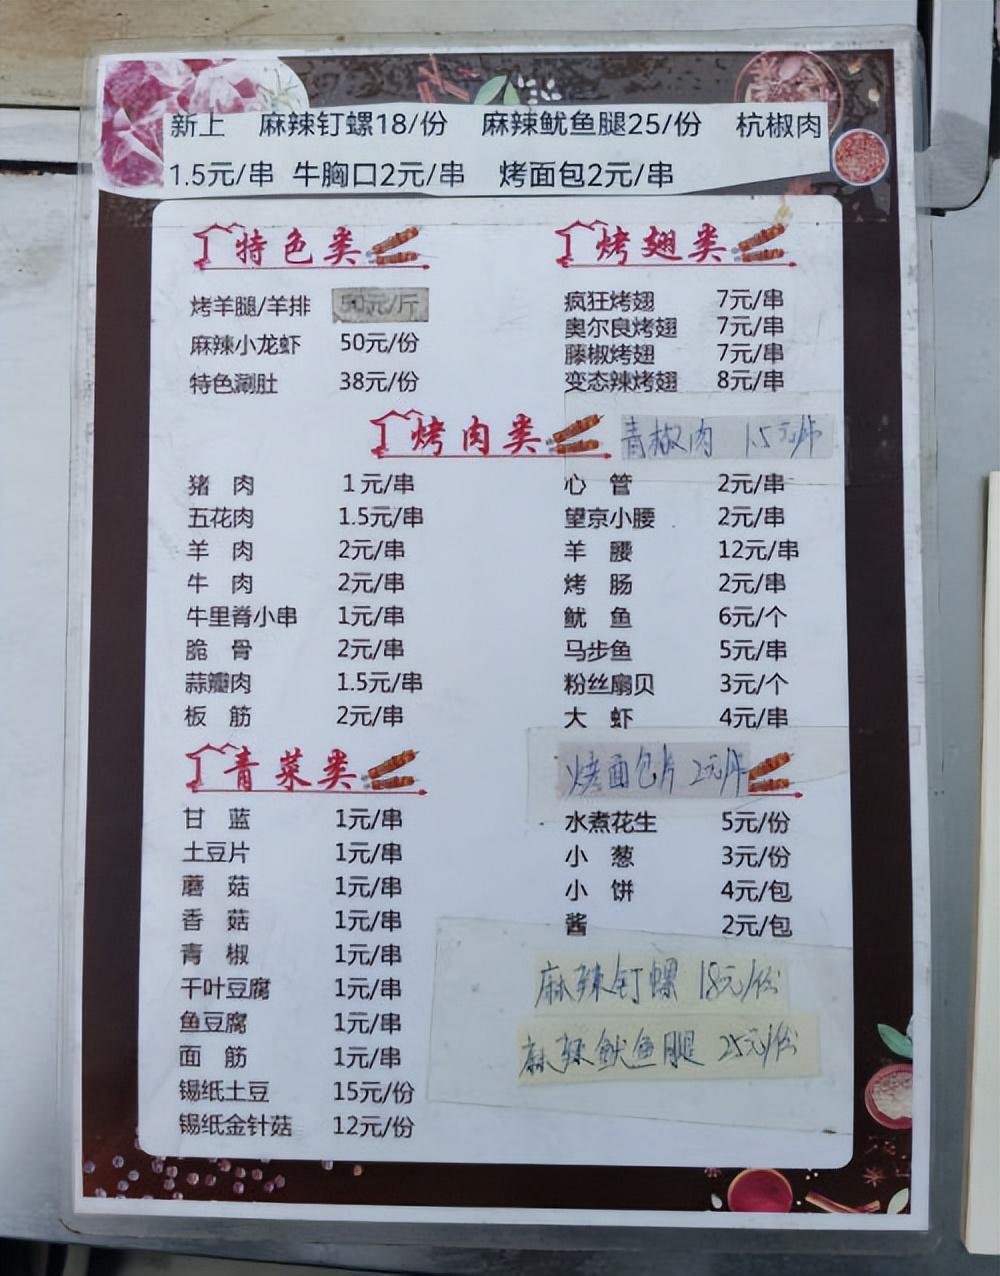 新上 麻辣钉螺18/份 麻辣鱿鱼腿25/份 杭椒肉
1.5元/串 牛胸口2元/串 烤面包2元/串
特色类
烤羊腿/羊排 50元/斤
麻辣小龙虾 50元/份
特色涮肚 38元/份
烤翅类
疯狂烤翅 7元/串
奥尔良烤翅 7元/串
藤椒烤翅 7元/串
变态辣烤翅 8元/串
烤肉类 青椒肉 1.5元/串
猪肉 1元/串
五花肉 1.5元/串
羊肉 2元/串
牛肉 2元/串
牛里脊小串 1元/串
脆骨 2元/串
蒜瓣肉 1.5元/串
板筋 2元/串
心管 2元/串
望京小腰 2元/串
羊腰 12元/串
烤肠 2元/串
鱿鱼 6元/个
马步鱼 5元/串
粉丝扇贝 3元/个
大虾 4元/串
青菜类
甘蓝 1元/串
土豆片 1元/串
蘑菇 1元/串
香菇 1元/串
青椒 1元/串
干叶豆腐 1元/串
鱼豆腐 1元/串
面筋 1元/串
锡纸土豆 15元/份
锡纸金针菇 12元/份
烤面包片 2元/串
水煮花生 5元/份
小葱 3元/份
小饼 4元/包
酱 2元/包
麻辣钉螺 18元/份
麻辣鱿鱼腿 25元/份